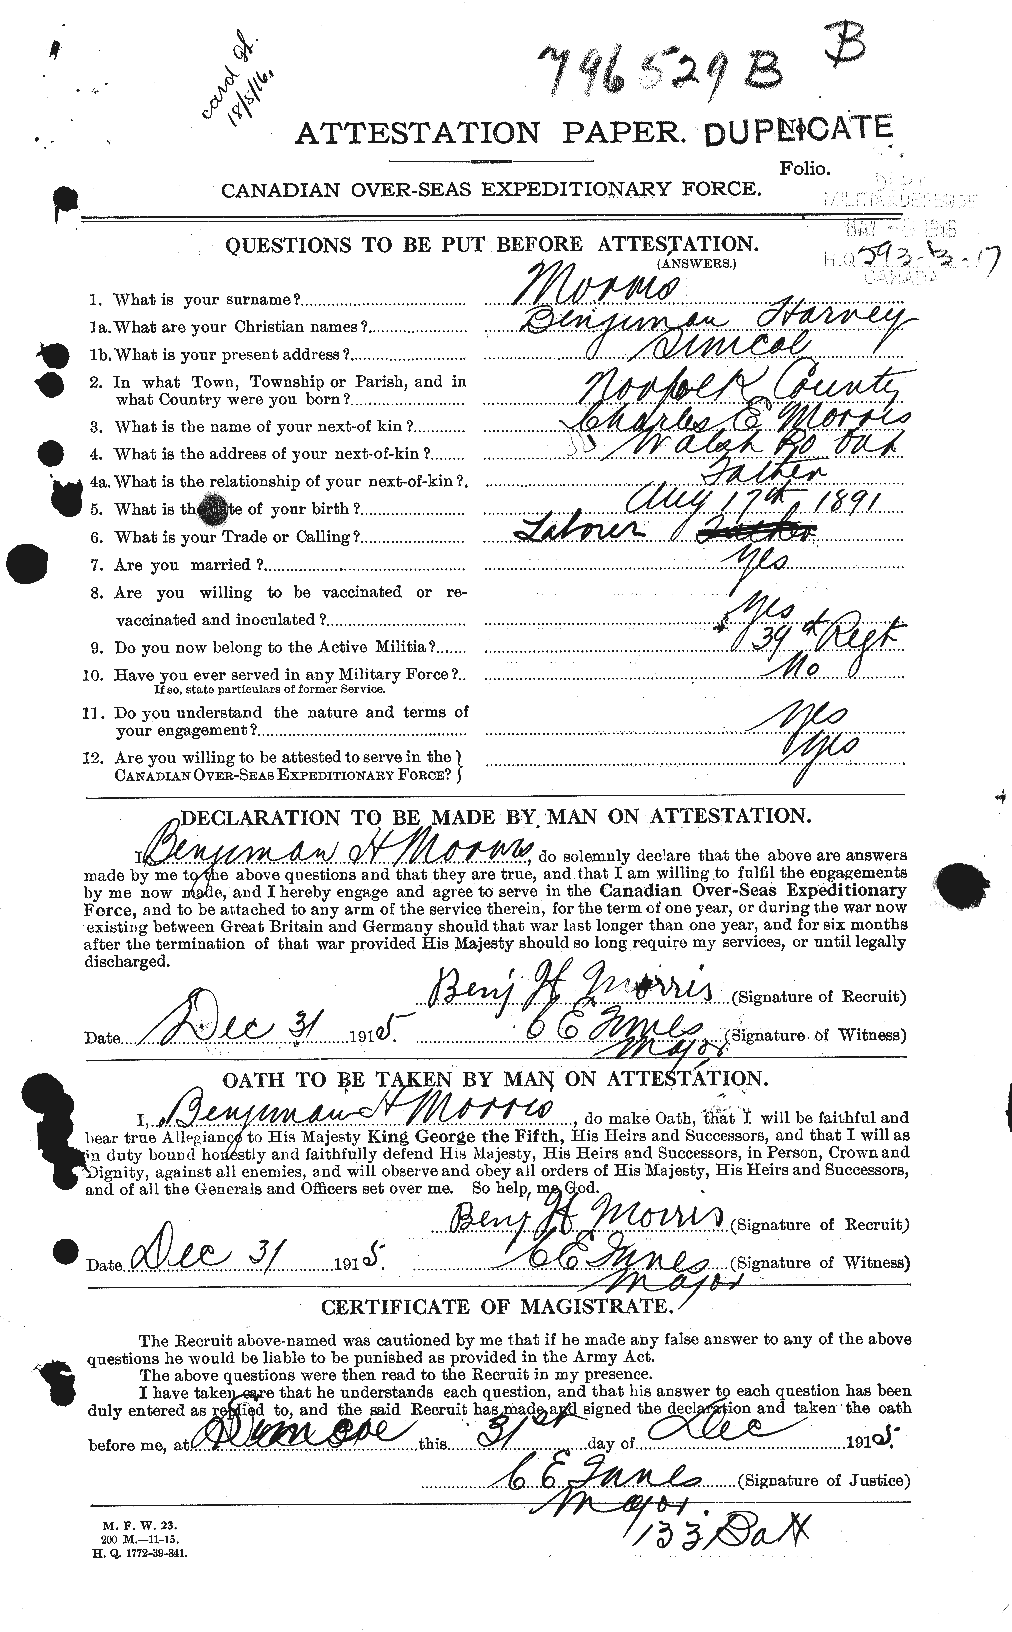 card gt.
18/5/16.
796529 B
B
ATTESTATION PAPER. DUPLICATE
Folio.
CANADIAN OVER-SEAS EXPEDITIONARY FORCE.
MAY 1916
H.Q. 593-3-17
CANADA
QUESTIONS TO BE PUT BEFORE ATTESTATION.
(ANSWERS.)
1. What is your surname? Morris
1a. What are your Christian names? Benjiman Harvey
1b. What is your present address? Simcoe
2. In what Town, Township or Parish, and in
what Country were you born? Norfolk County
3. What is the name of your next-of kin? Charles E Morris
4. What is the address of your next-of-kin? Walsh Po Ont
4a. What is the relationship of your next-of-kin? Father
5. What is the date of your birth? Aug 17th 1891
6. What is your Trade or Calling? Laborer
7. Are you married? Yes
8. Are you willing to be vaccinated or re-
vaccinated and inoculated? Yes
9. Do you now belong to the Active Militia? 39th Regt
10. Have you ever served in any Military Force? No
If so, state particulars of former Service.
11. Do you understand the nature and terms of
your engagement? Yes
12. Are you willing to be attested to serve in the
CANADIAN OVER-SEAS EXPEDITIONARY FORCE? Yes
DECLARATION TO BE MADE BY MAN ON ATTESTATION.
I, Benjiman H Morris, do solemnly declare that the above are answers
made by me to the above questions and that they are true, and that I am willing to fulfil the engagements
by me now made, and I hereby engage and agree to serve in the Canadian Over-Seas Expeditionary
Force, and to be attached to any arm of the service therein, for the term of one year, or during the war now
existing between Great Britain and Germany should that war last longer than one year, and for six months
after the termination of that war provided His Majesty should so long require my services, or until legally
discharged.
Benj H Morris (Signature of Recruit)
Date Dec 31 1915. C E Innes (Signature of Witness)
Major
OATH TO BE TAKEN BY MAN ON ATTESTATION.
I, Benjiman H Morris, do make Oath, that I will be faithful and
bear true Allegiance to His Majesty King George the Fifth, His Heirs and Successors, and that I will as
in duty bound honestly and faithfully defend His Majesty, His Heirs and Successors, in Person, Crown and
Dignity, against all enemies, and will observe and obey all orders of His Majesty, His Heirs and Successors,
and of all the Generals and Officers set over me. So help, me God.
Benj H Morris (Signature of Recruit)
Date Dec 31 1915. C E Innes (Signature of Witness)
Major
CERTIFICATE OF MAGISTRATE.
The Recruit above-named was cautioned by me that if he made any false answer to any of the above
questions he would be liable to be punished as provided in the Army Act.
The above questions were then read to the Recruit in my presence.
I have taken care that he understands each question, and that his answer to each question has been
duly entered as replied to, and the said Recruit has made and signed the declaration and taken the oath
before me, at Simcoe this 31st day of Dec 1915.
C E Innes (Signature of Justice)
Major.
133 Batt
M. F. W. 23.
200 M.—11-15.
H. Q. 1772-39-841.